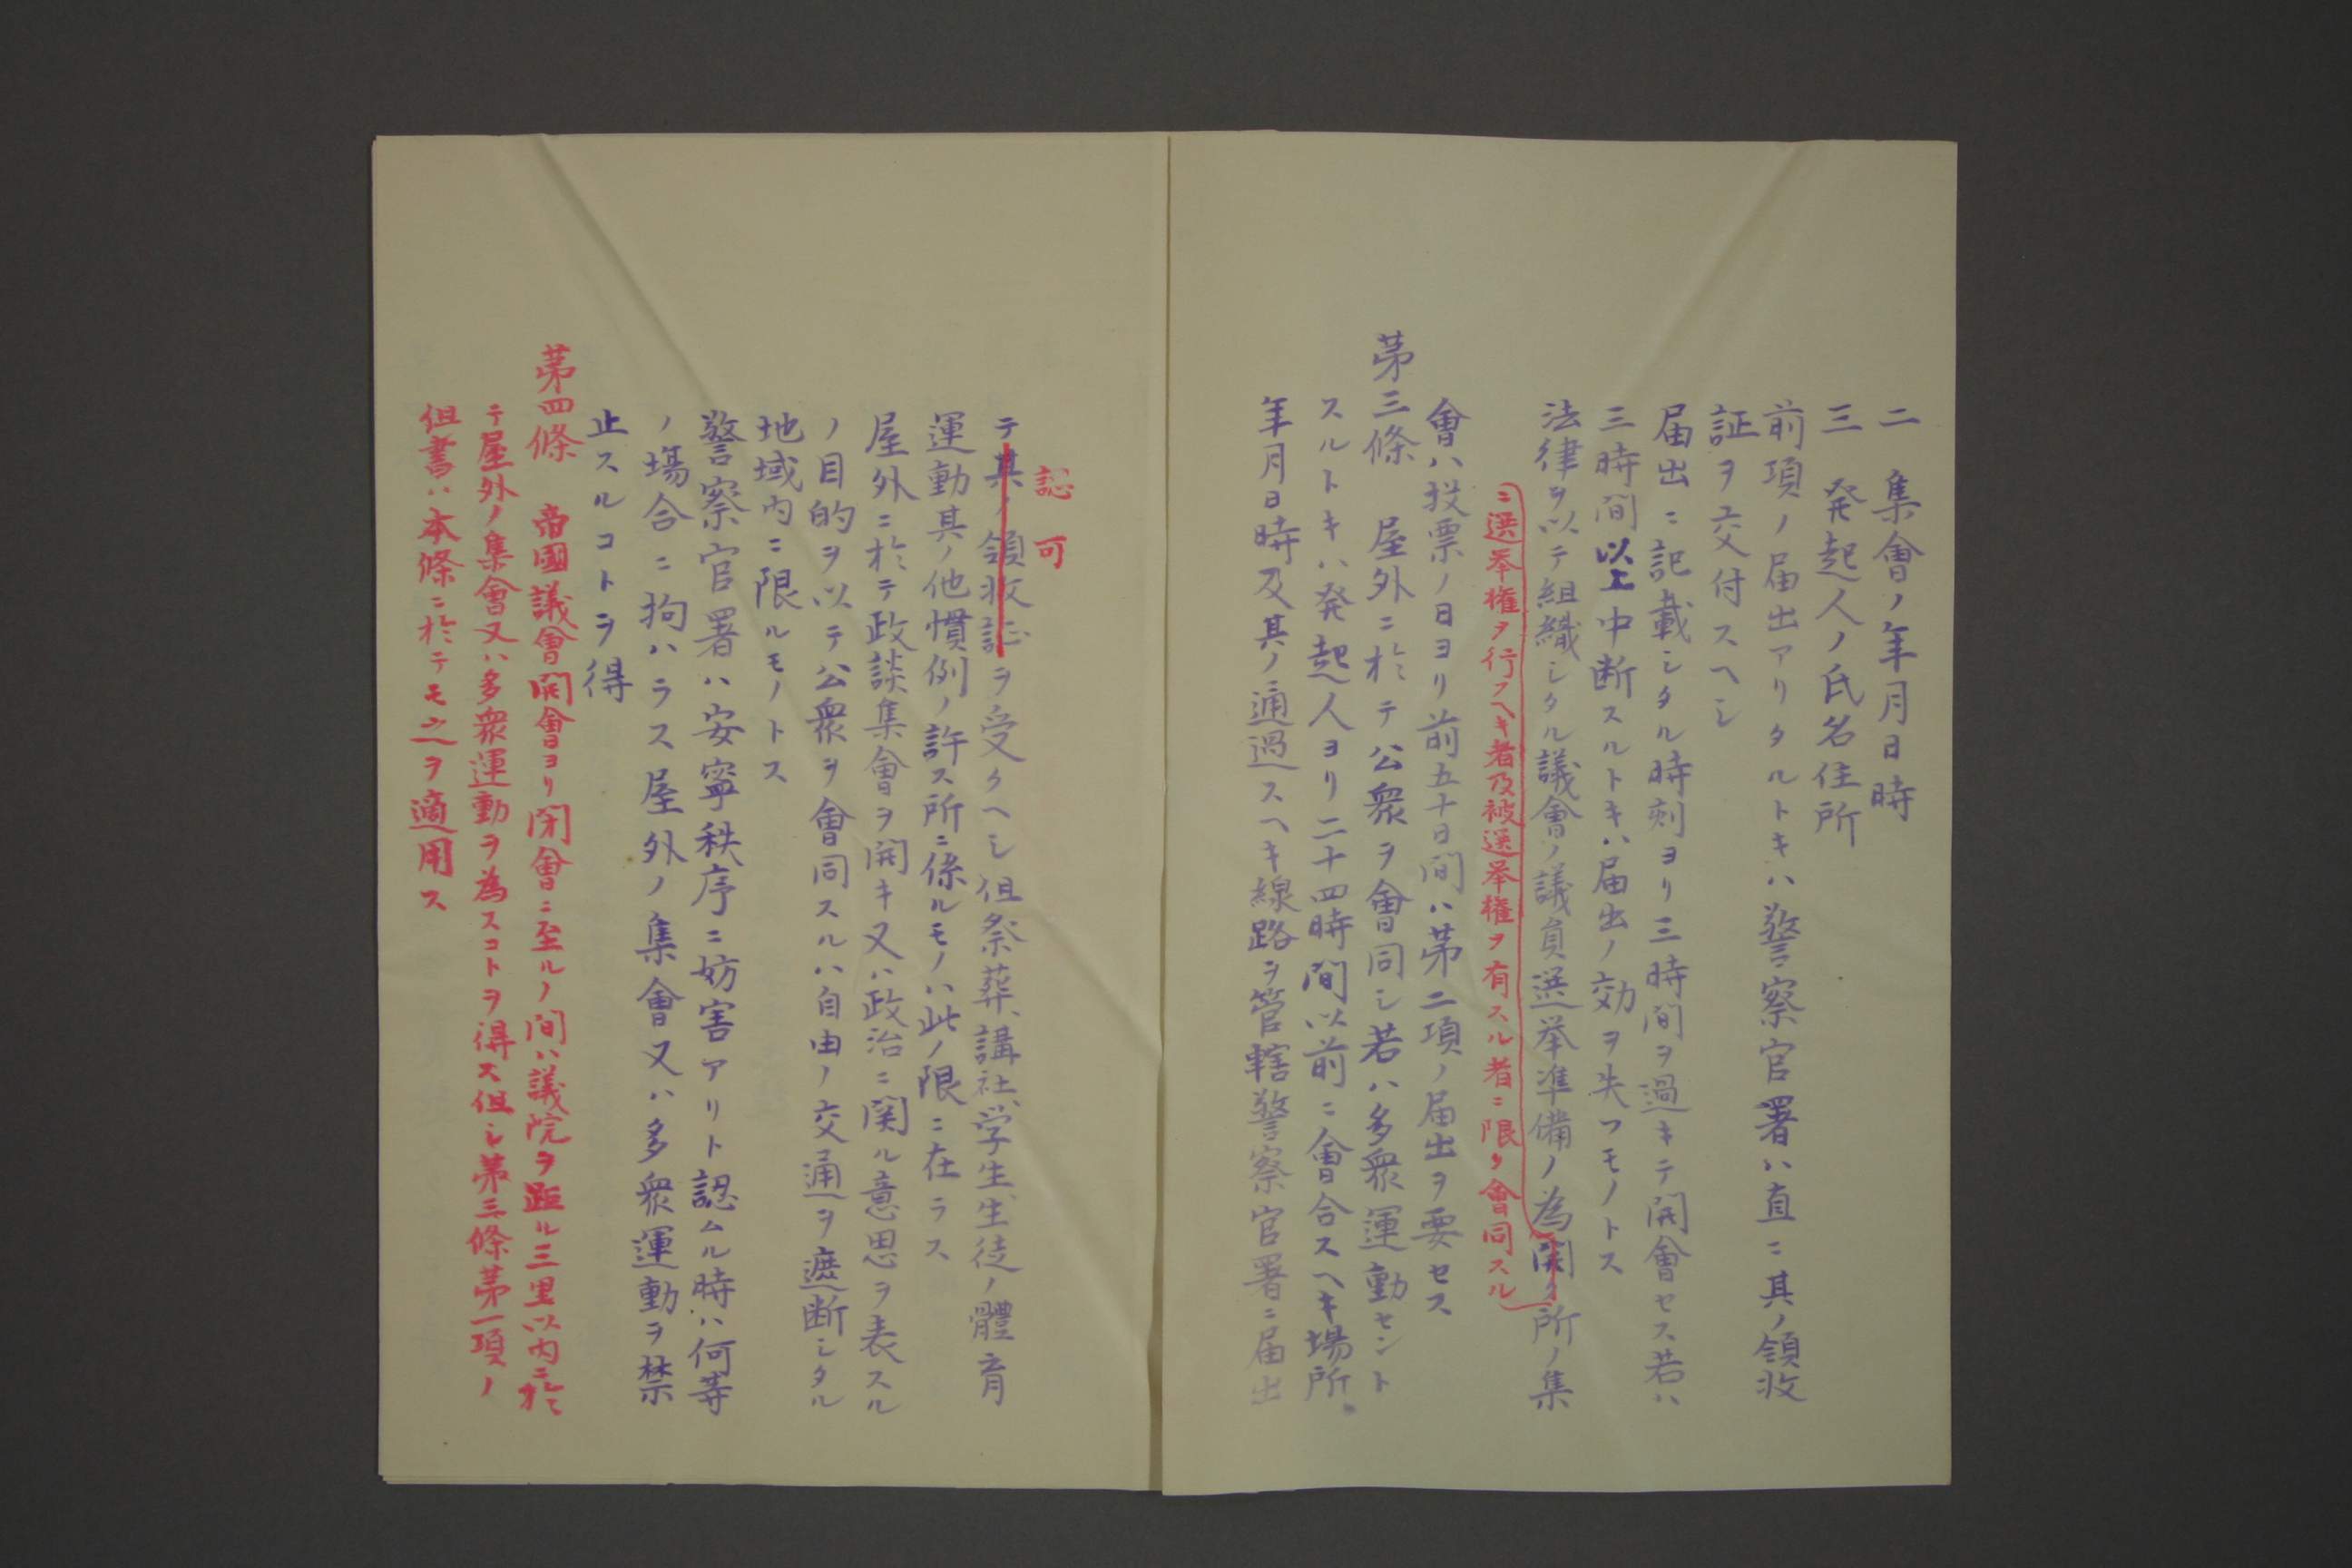 二　集會ノ年月日時
三　発起人ノ氏名住所
前項ノ届出アリタルトキハ警察官署ハ直ニ其ノ領收
証ヲ交付スヘシ
届出ニ記載シタル時刻ヨリ三時間ヲ過キテ開會セス若ハ
三時間以上中断スルトキハ届出ノ効ヲ失フモノトス
法律ヲ以テ組織シタル議會ノ議員選挙準備ノ為開ク所ノ集
ニ選挙権ヲ行フヘキ者及被選挙権ヲ有スル者ニ限リ會同スル
會ハ投票ノ日ヨリ前五十日間ハ第二項ノ届出ヲ要セス
第三條　屋外ニ於テ公衆ヲ會同シ若ハ多衆運動セント
スルトキハ発起人ヨリ二十四時間以前ニ會合スヘキ場所、
年月日時及其ノ通過スヘキ線路ヲ管轄警察官署ニ届出
認可
テ其ノ領收証ヲ受クヘシ但祭葬、講社、学生、生徒ノ體育
運動其ノ他慣例ノ許ス所ニ係ルモノハ此ノ限ニ在ラス
屋外ニ於テ政談集會ヲ開キ又ハ政治ニ関ル意思ヲ表スル
ノ目的ヲ以テ公衆ヲ會同スルハ自由ノ交通ヲ遮断シタル
地域内ニ限ルモノトス
警察官署ハ安寧秩序ニ妨害アリト認ムル時ハ何等
ノ場合ニ拘ハラス屋外ノ集會又ハ多衆運動ヲ禁
止スルコトヲ得
第四條　帝國議會開會ヨリ閉會ニ至ルノ間ハ議院ヲ距ル三里以内ニ於
テ屋外ノ集會又ハ多衆運動ヲ為スコトヲ得ス但シ第三條第一項ノ
但書ハ本條ニ於テモ之ヲ適用ス